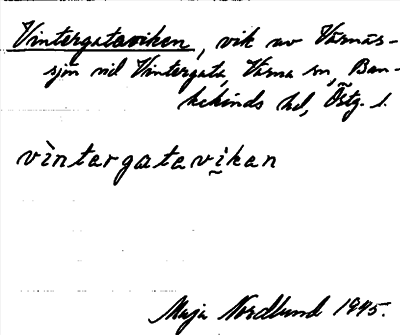 Vintergataviken, vik av Värnäs-
sjön vid Vintergata, Värna sn, Ban-
kekinds hd, Östg. l.
vìntərgatavi̬kən
Maja Nordlund 1945.